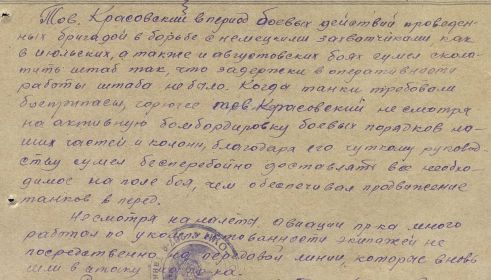 Тов. Красовский в период боевых действий проведен-
ных бригадой в борьбе с немецкими захватчиками как
в июльских, а также и августовских боях сумел сколо-
тить штаб так, что задержки в оперативности
работы штаба не было. Когда танки требовали
боеприпасы, горючее тов. Красовский не смотря
на активную бомбардировку боевых порядков на-
ших частей и колонн, благодаря его чуткому руковод-
ству сумел бесперебойно доставлять все необхо-
димое на поле боя, чем обеспечивал продвижение
танков в перед.
Несмотря на налеты авиации пр-ка много
работал по укомплектованности экипажей не
посредственно на передовой линии, которые вновь
шли в атаку